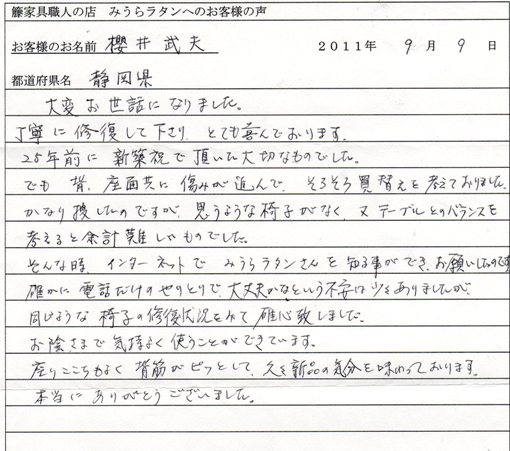 籐家具職人の店 みうらラタンへのお客様の声
お客様のお名前 櫻井武夫 2011年 9月 9日
都道府県名 静岡県
大変お世話になりました。
丁寧に修復して下さり とても喜んでおります。
25年前に 新築祝で頂いた大切なものでした。
でも 背、座面共に 傷みが進んで、そろそろ買替えを考えておりました。
かなり捜したのですが、思うような椅子がなく、又テーブルとのバランスを
考えると余計難しいものでした。
そんな時、インターネットで みうらラタンさんを 知る事ができ、お願いしたのです
確かに 電話だけのやりとりで、大丈夫かなという不安は少々ありましたが、
同じような 椅子の修復状況をみて 確心致しました。
お陰さまで 気持よく 使うことができています。
座りごこちもよく 背筋がピッとして、久々新品の気分を味わっております。
本当に ありがとうございました。